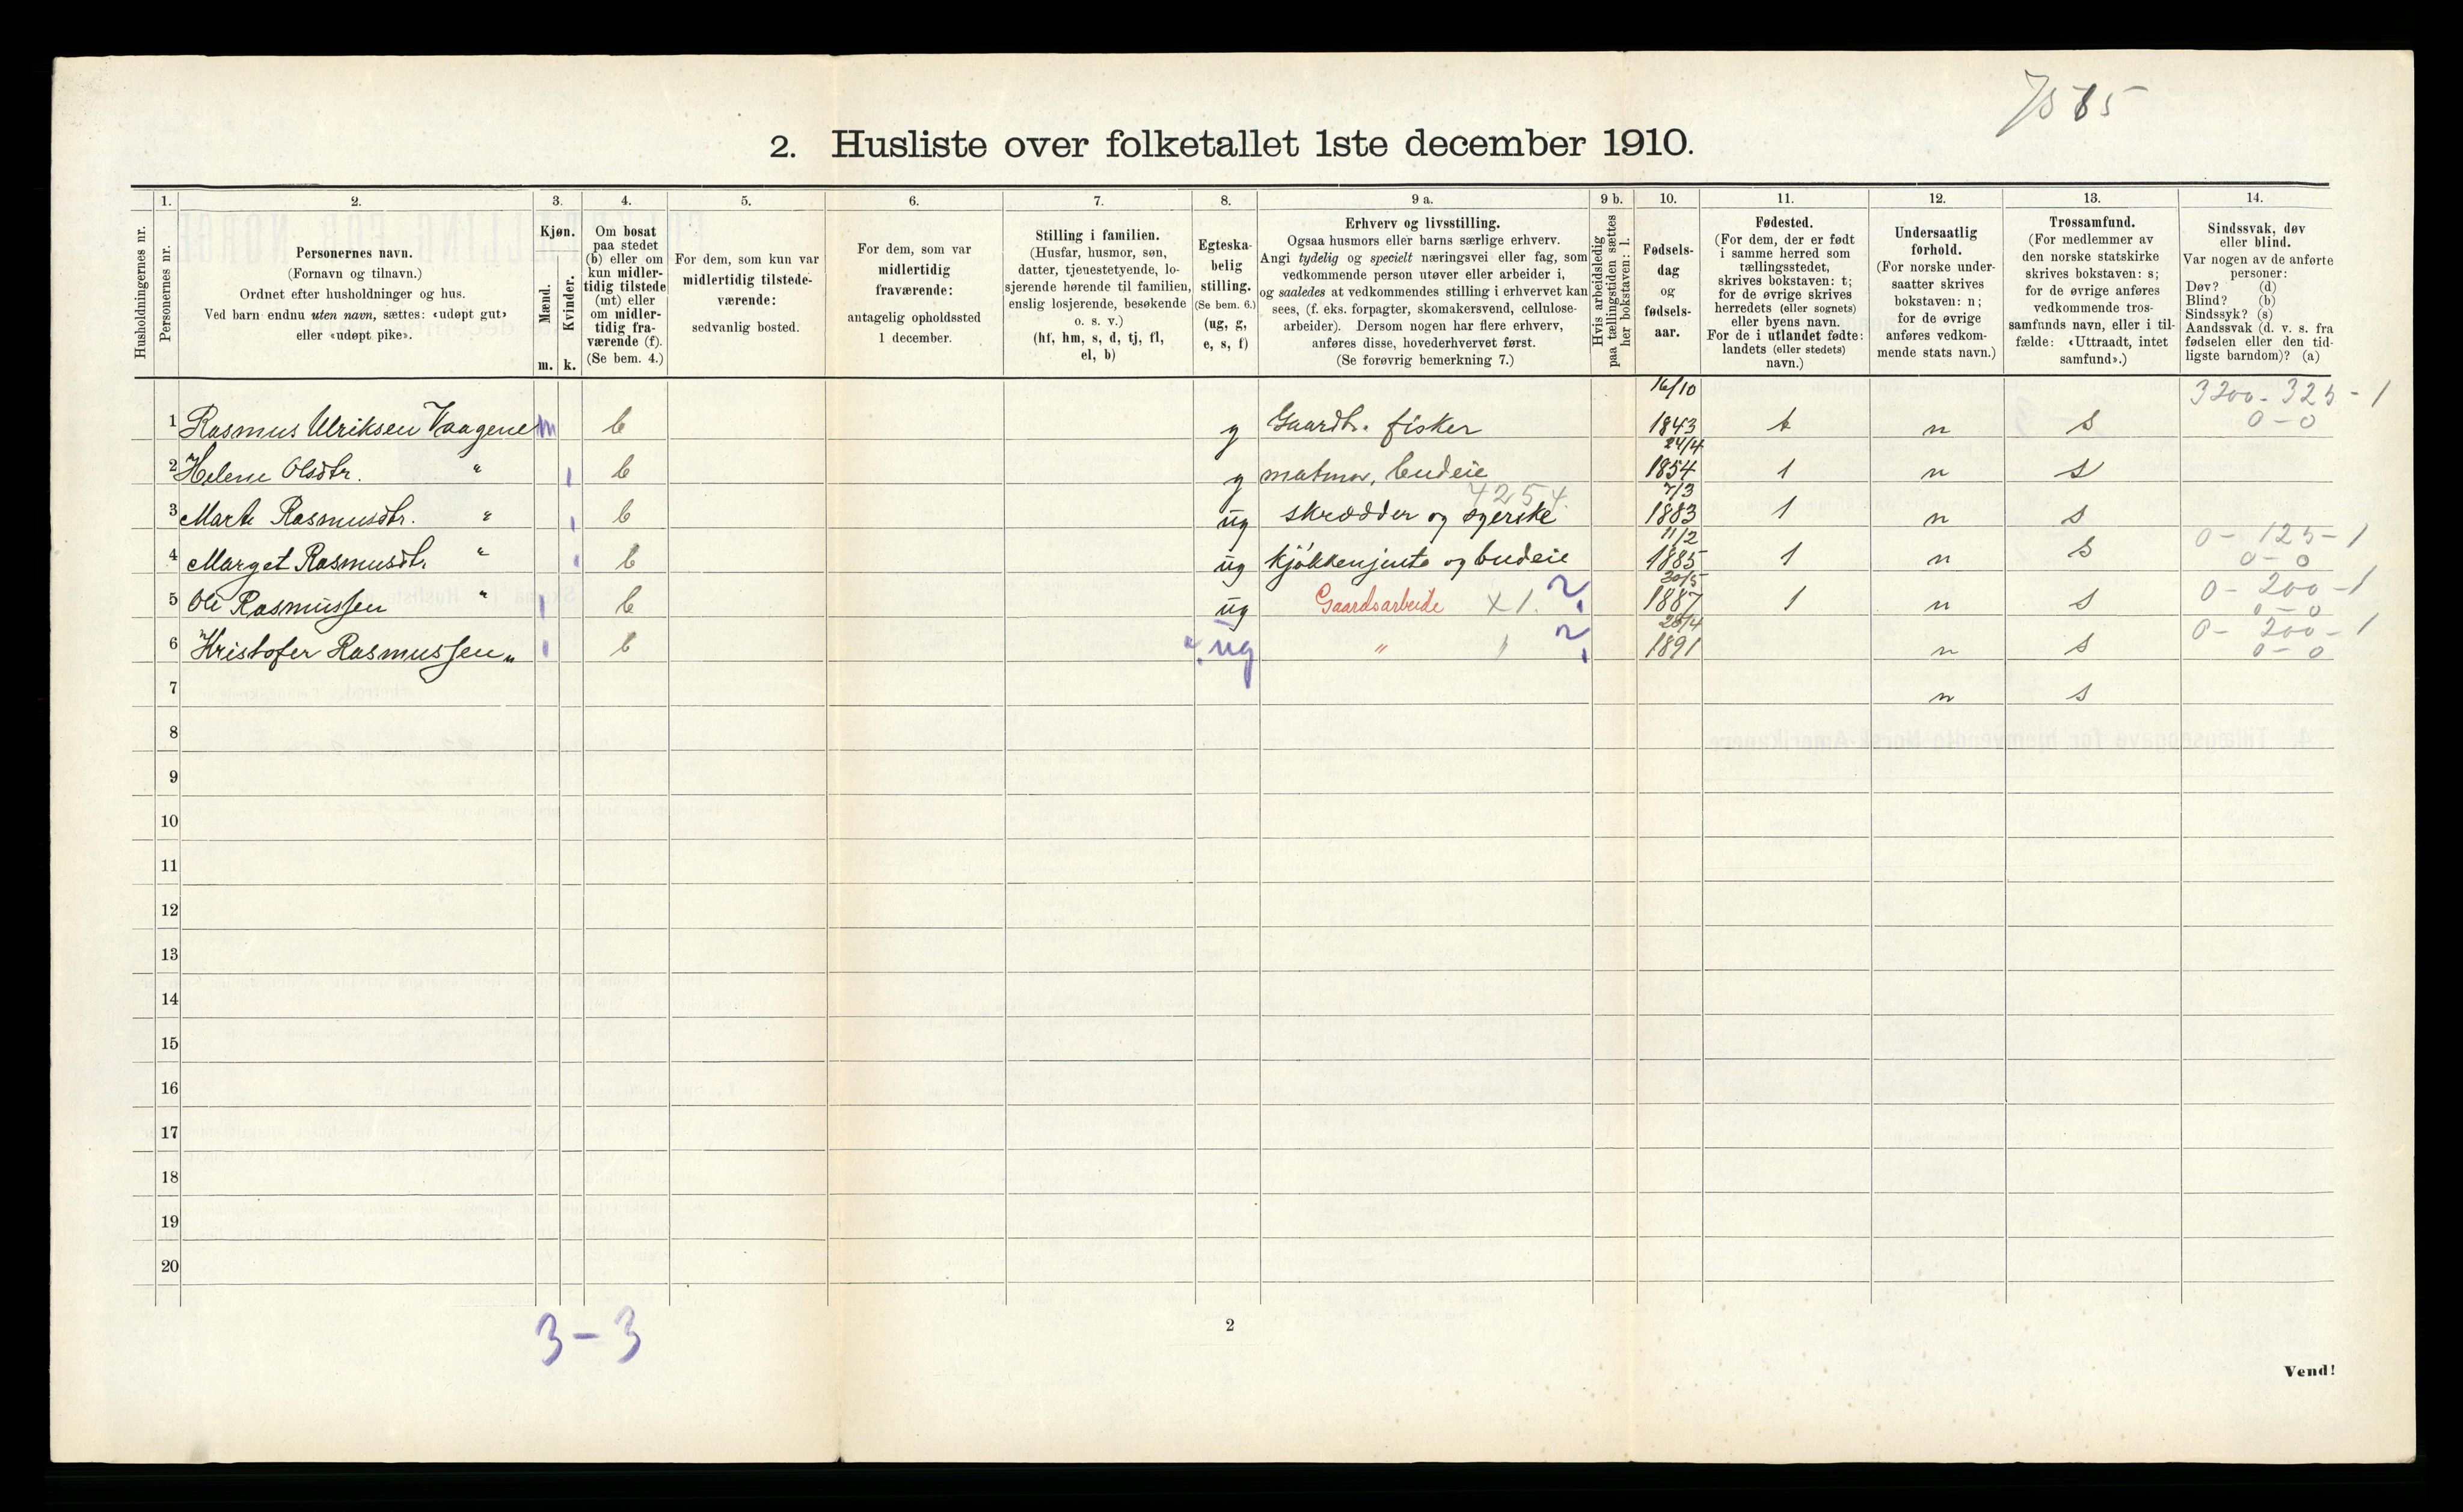 7585
2. Husliste over folketallet 1ste december 1910.
Husholdningernes nr.
1.
Personernes nr.
2.
Personernes navn.
(Fornavn og tilnavn.)
Ordnet efter husholdninger og hus.
Ved barn endnu uten navn, sættes: «udøpt gut»
eller «udøpt pike».
3.
Kjøn.
Mænd.
m.
Kvinder.
k.
4.
Om bosat
paa stedet
(b) eller om
kun midler-
tidig tilstede
(mt) eller
om midler-
tidig fra-
værende (f).
(Se bem. 4.)
5.
For dem, som kun var
midlertidig tilstede-
værende:
sedvanlig bosted.
6.
For dem, som var
midlertidig
fraværende:
antagelig opholdssted
1 december.
7.
Stilling i familien.
(Husfar, husmor, søn,
datter, tjenestetyende, lo-
sjerende hørende til familien,
enslig losjerende, besøkende
o. s. v.)
(hf, hm, s, d, tj, fl,
el, b)
8.
Egteska-
belig
stilling.
(Se bem. 6.)
(ug, g,
e, s, f)
9 a.
Erhverv og livsstilling.
Ogsaa husmors eller barns særlige erhverv.
Angi tydelig og specielt næringsvei eller fag, som
vedkommende person utøver eller arbeider i,
og saaledes at vedkommendes stilling i erhvervet kan
sees, (f. eks. forpagter, skomakersvend, cellulose-
arbeider). Dersom nogen har flere erhverv,
anføres disse, hovederhvervet først.
(Se forøvrig bemerkning 7.)
9 b.
Hvis arbeidsledig
paa tællingstiden sættes
her bokstaven: l.
10.
Fødsels-
dag
og
fødsels-
aar.
11.
Fødested.
(For dem, der er født
i samme herred som
tællingsstedet,
skrives bokstaven: t;
for de øvrige skrives
herredets (eller sognets)
eller byens navn.
For de i utlandet fødte:
landets (eller stedets)
navn.)
12.
Undersaatlig
forhold.
(For norske under-
saatter skrives
bokstaven: n;
for de øvrige
anføres vedkom-
mende stats navn.)
13.
Trossamfund.
(For medlemmer av
den norske statskirke
skrives bokstaven: s;
for de øvrige anføres
vedkommende tros-
samfunds navn, eller i til-
fælde: «Uttraadt, intet
samfund».)
14.
Sindssvak, døv
eller blind.
Var nogen av de anførte
personer:
Døv? (d)
Blind? (b)
Sindssyk? (s)
Aandssvak (d. v. s. fra
fødselen eller den tid-
ligste barndom)? (a)
16/10 3200-325-1
1 Rasmus Ulriksen Vaagene m b g Gaardbr. fisker 1843 t n s 0-0
24/4
2 Helene Olsdtr. " 1 b g matmor, budeie 1854 1 n s
4254 7/3
3 Marte Rasmusdtr. " 1 b ug skrædder og syerske 1883 1 n s
11/2 0-125-1
4 Marget Rasmusdt. " 1 b ug kjøkkenjente og budeie 1885 1 n s 0-0
30/5 0-200-1
5 Ole Rasmussen " 1 b ug Gaardsarbeide x 1. ? 1887 1 n s 0-0
28/4 0-200-1
6 Kristofer Rasmussen „ 1 b ug " ? 1891 n s 0-0
7 n s
8
9
10
11
12
13
14
15
16
17
18
19
20
3-3
2
Vend!